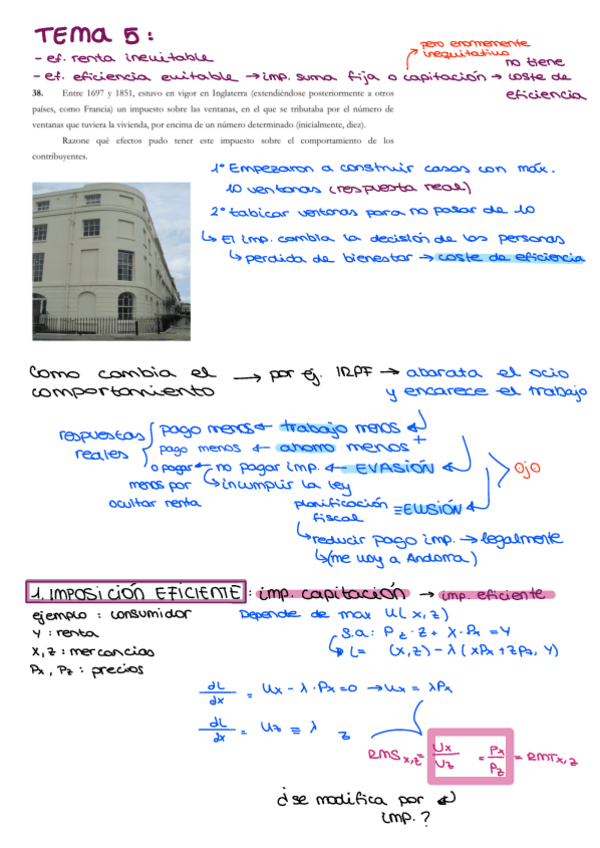 TEMA 5:
pero enormemente
inequitativo
- ef. renta inevitable
no tiene
- ef. eficiencia evitable → imp. suma fija o capitación → coste de
eficiencia
38. Entre 1697 y 1851, estuvo en vigor en Inglaterra (extendiéndose posteriormente a otros
países, como Francia) un impuesto sobre las ventanas, en el que se tributaba por el número de
ventanas que tuviera la vivienda, por encima de un número determinado (inicialmente, diez).
Razone qué efectos pudo tener este impuesto sobre el comportamiento de los
contribuyentes.
1º Empezaron a construir casas con máx.
10 ventanas (respuesta real)
2º tabicar ventanas para no pasar de 10
↳ El imp. cambia la decisión de las personas
↳ perdida de bienestar → coste de eficiencia
Como cambia el → por ej. IRPF → abarata el ocio
comportamiento y encarece el trabajo
respuestas pago menos ← trabajo menos
reales pago menos ← ahorro menos +
o pagar ← no pagar imp. ← EVASIÓN
Ojo
menos por ↳ incumplir la ley
ocultar renta planificación ≡ ELUSIÓN
fiscal
↳ reducir pago imp. → legalmente
↳ (me voy a Andorra)
1. IMPOSICIÓN EFICIENTE: imp. capitación → imp. eficiente
ejemplo: consumidor Depende de max U(x,z)
Y: renta s.a: Pz·z + X·Px = Y
X, z: mercancias ↳ L= (x,z) - λ(xPx + zPz, Y)
Px, Pz: precios
dL/dx = Ux - λ·Px = 0 → Ux = λPx
dL/dx = Uz ≡ λ z
RMS x,z = Ux/Uz = Px/Pz = RMT x,z
¿se modifica por
imp.?